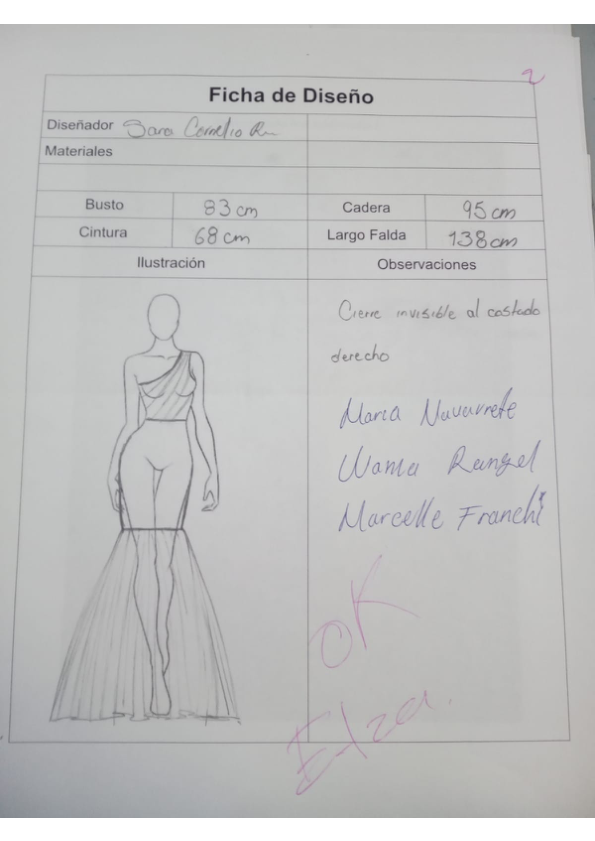 2
Ficha de Diseño
Diseñador Sara Cornelio R
Materiales
Busto 83 cm Cadera 95 cm
Cintura 68 cm Largo Falda 138 cm
Ilustración Observaciones
Cierre invisible al costado
derecho
Maria Navarrete
Wania Rangel
Marcelle Franchi
OK
Elza.